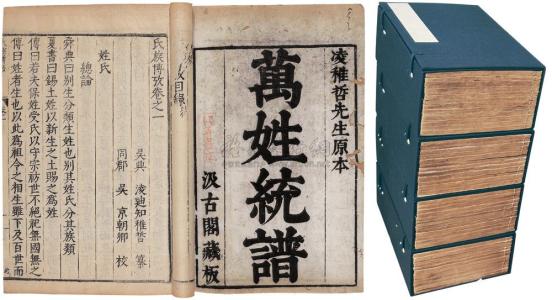 凌稚哲先生原本
萬姓統譜
汲古閣藏板
氏族博攷卷之一
吳興 凌迪知稚哲 纂
同郡 吳京朝卿 校
姓氏
總論
舜典曰別生分類生姓也別其姓氏分其族類
夏書曰錫土姓以新生之土賜之爲姓
傳曰若夫保姓受氏以守宗祊世不絕祀無國無之
傳曰姓者生也以此爲祖令之相生雖下及百世而